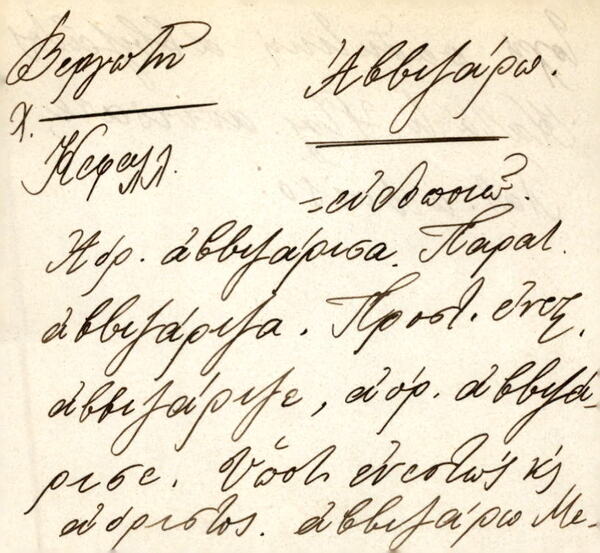 Βεργωτῆ
χ.
Κεφαλλ.
Ἀββιζάρω.
= εἰδοποιῶ.
Ἀόρ. ἀββιζάρισα. Παρατ.
ἀββιζάριζα. Προστ. ἐνεξ.
ἀββιζάριζε, ἀόρ. ἀββιζά-
ρισε. Ὑποτ. ἐνεστὼς κὶ
ἀόριστος. ἀββιζάρω Με-